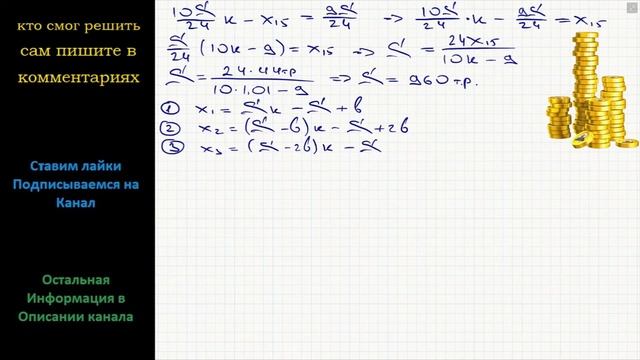 кто смог решить
сам пишите в
комментариях
Ставим лайки
Подписываемся на
Канал
Остальная
Информация в
Описании канала
10S/24 k - x₁₅ = 9S/24 => 10S/24 · k - 9S/24 = x₁₅
S/24 (10k - 9) = x₁₅ => S = 24x₁₅/(10k - 9)
S = 24·44тр/(10·1,01 - 9) => S = 960 т.р.
① x₁ = Sk - S + b
② x₂ = (S - b)k - S + 2b
③ x₃ = (S - 2b)k - S